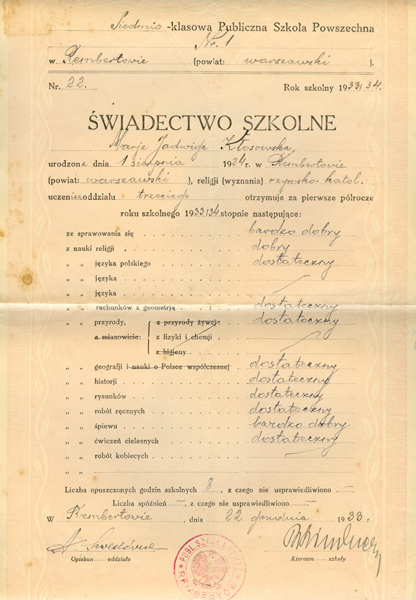 Siedmio-klasowa Publiczna Szkoła Powszechna
Nr. 1
w Rembertowie (powiat: warszawski).
Nr. 22. Rok szkolny 1933/34.
ŚWIADECTWO SZKOLNE
Marja Jadwiga Kłosowska,
urodzona dnia 1 sierpnia 1924 r. w Rembertowie
(powiat: warszawski), religji (wyznania) rzymsko-katol.
uczenica oddziału trzeciego otrzymuje za pierwsze półrocze
roku szkolnego 1933/34 stopnie następujące:
ze sprawowania się bardzo dobry
z nauki religji dobry
„ „ języka polskiego dostateczny
„ „ języka —
„ „ języka —
„ „ rachunków z geometrją dostateczny
„ „ przyrody, z przyrody żywej dostateczny
a mianowicie: z fizyki i chemji
z higjeny
„ „ geografji i nauki o Polsce współczesnej dostateczny
„ „ historji dostateczny
„ „ rysunków dostateczny
„ „ robót ręcznych dostateczny
„ „ śpiewu bardzo dobry
„ „ ćwiczeń cielesnych dostateczny
„ „ robót kobiecych —
„ „
Liczba opuszczonych godzin szkolnych 8, z czego nie usprawiedliwiono —
Liczba spóźnień —, z czego nie usprawiedliwiono —
W Rembertowie, dnia 22 grudnia 1933 r.
Opiekun oddziału Kierown. szkoły